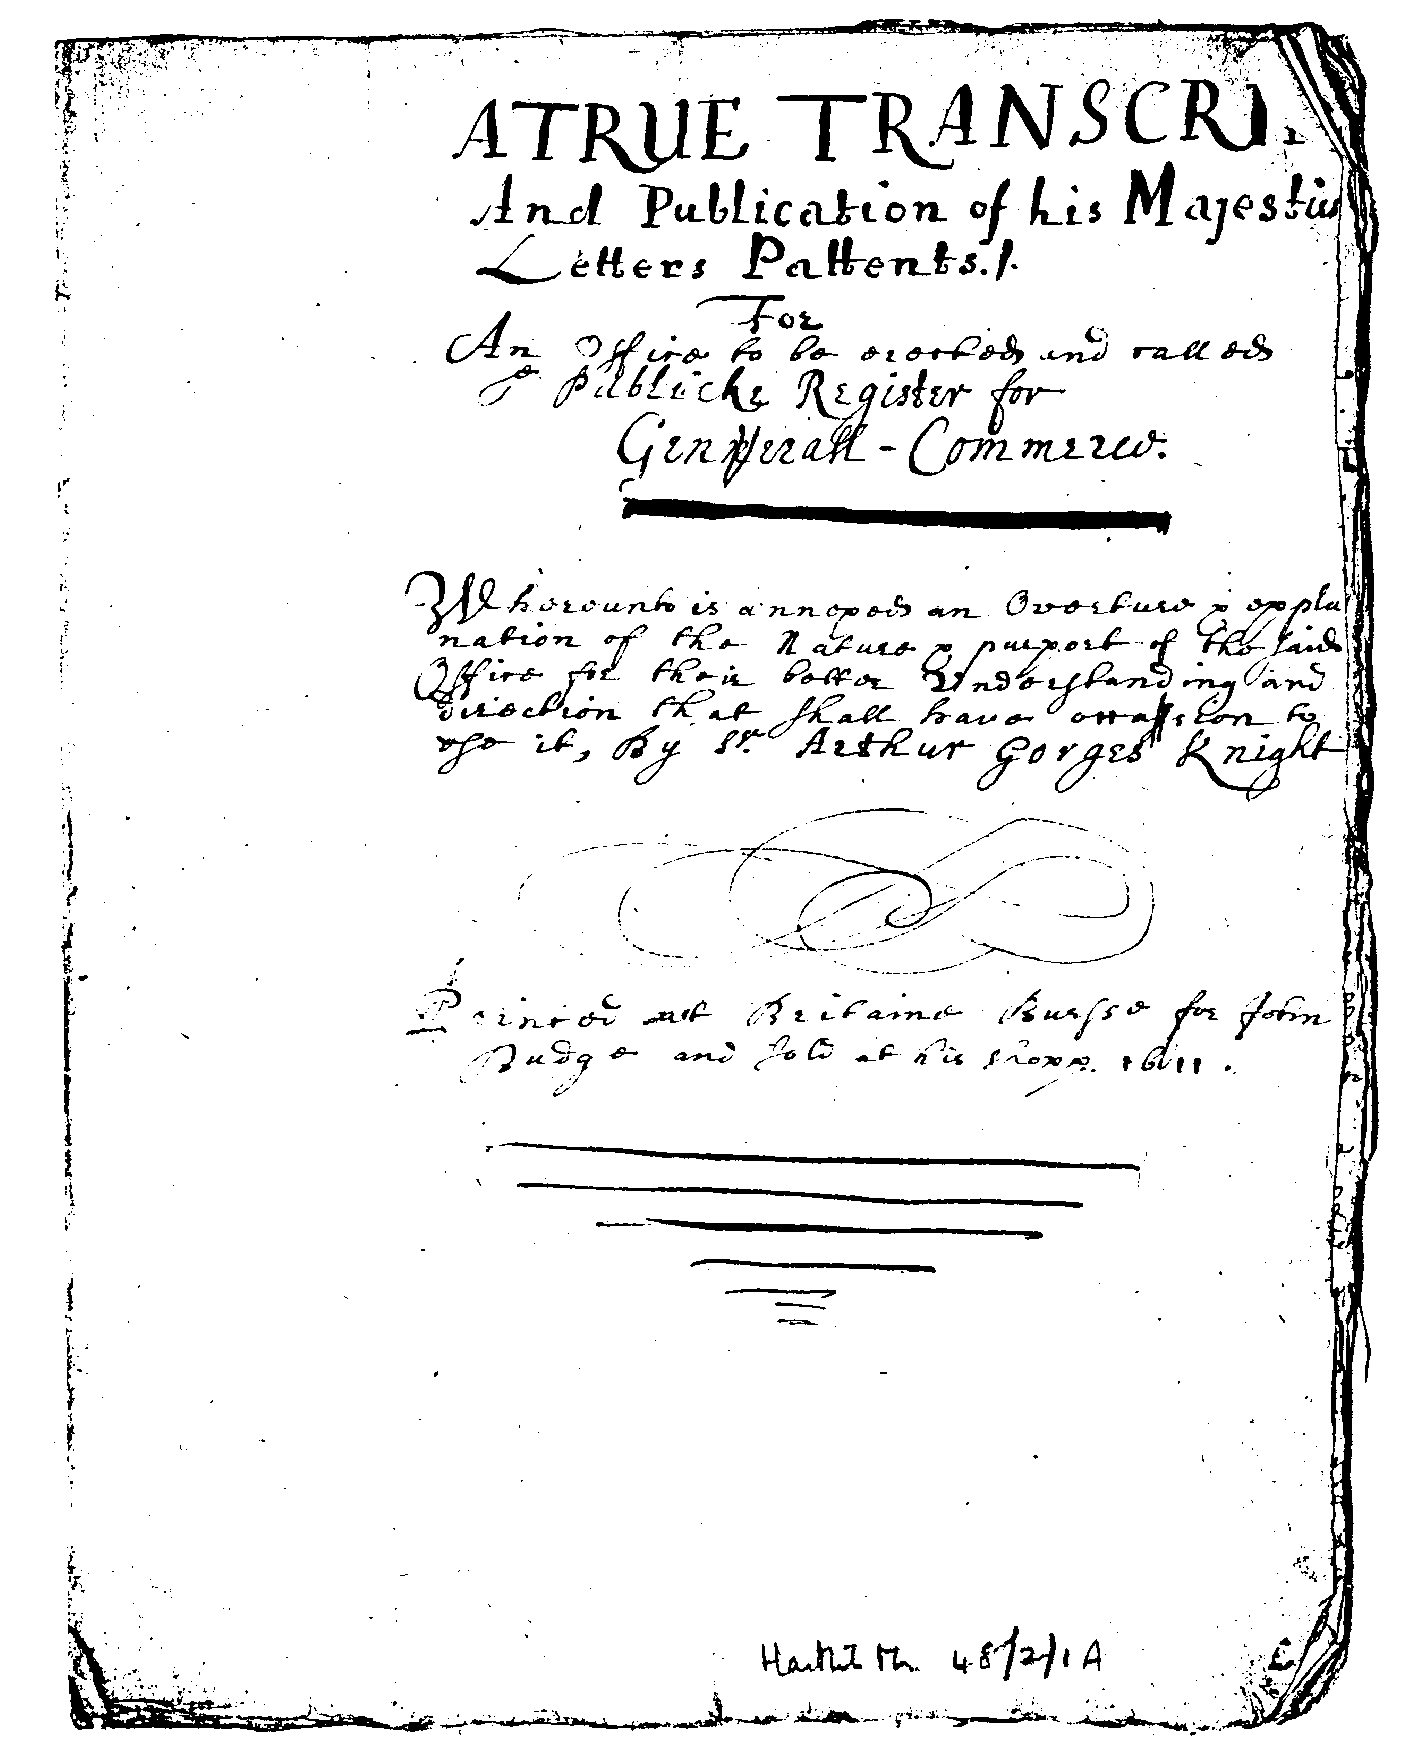 A TRUE TRANSCRI
And Publication of his Majesties
Letters Pattents./.
For
An Office to be erected and called
ye Publicke Register for
Generall - Commerce.
Whereunto is annexed an Overture & expla
nation of the Nature & purport of the said
Office for their better Understanding and
direction that shall have occassion to
use it, By Sr. Arthur Gorges Knight
Printed att Britaine Bursse for John
Budge and sold at his shopp. 1611.
Hartlib Ms. 48/2/1A